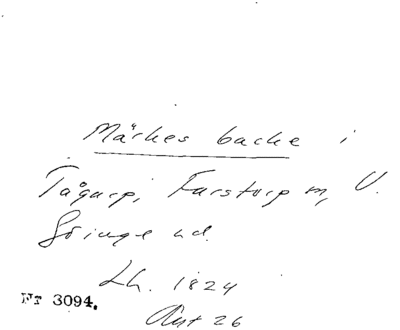 Märkes backe i
Tågarp, Farstorp m, V.
Göinge hd.
Lh. 1824
Nr 3094.
Ant 26